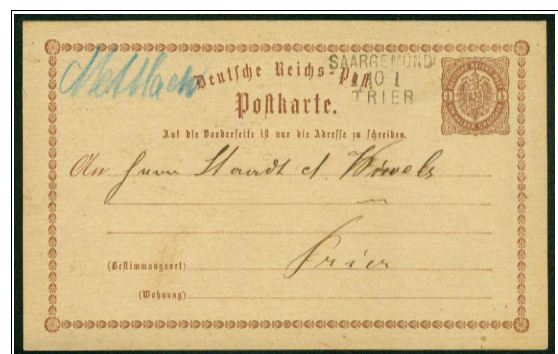 Mettlach
Deutsche Reichs-Post
SAARGEMÜND
10 1
TRIER
Postkarte.
Auf die Vorderseite ist nur die Adresse zu schreiben.
An Herrn Staadt et
Trier
(Bestimmungsort)
(Wohnung)